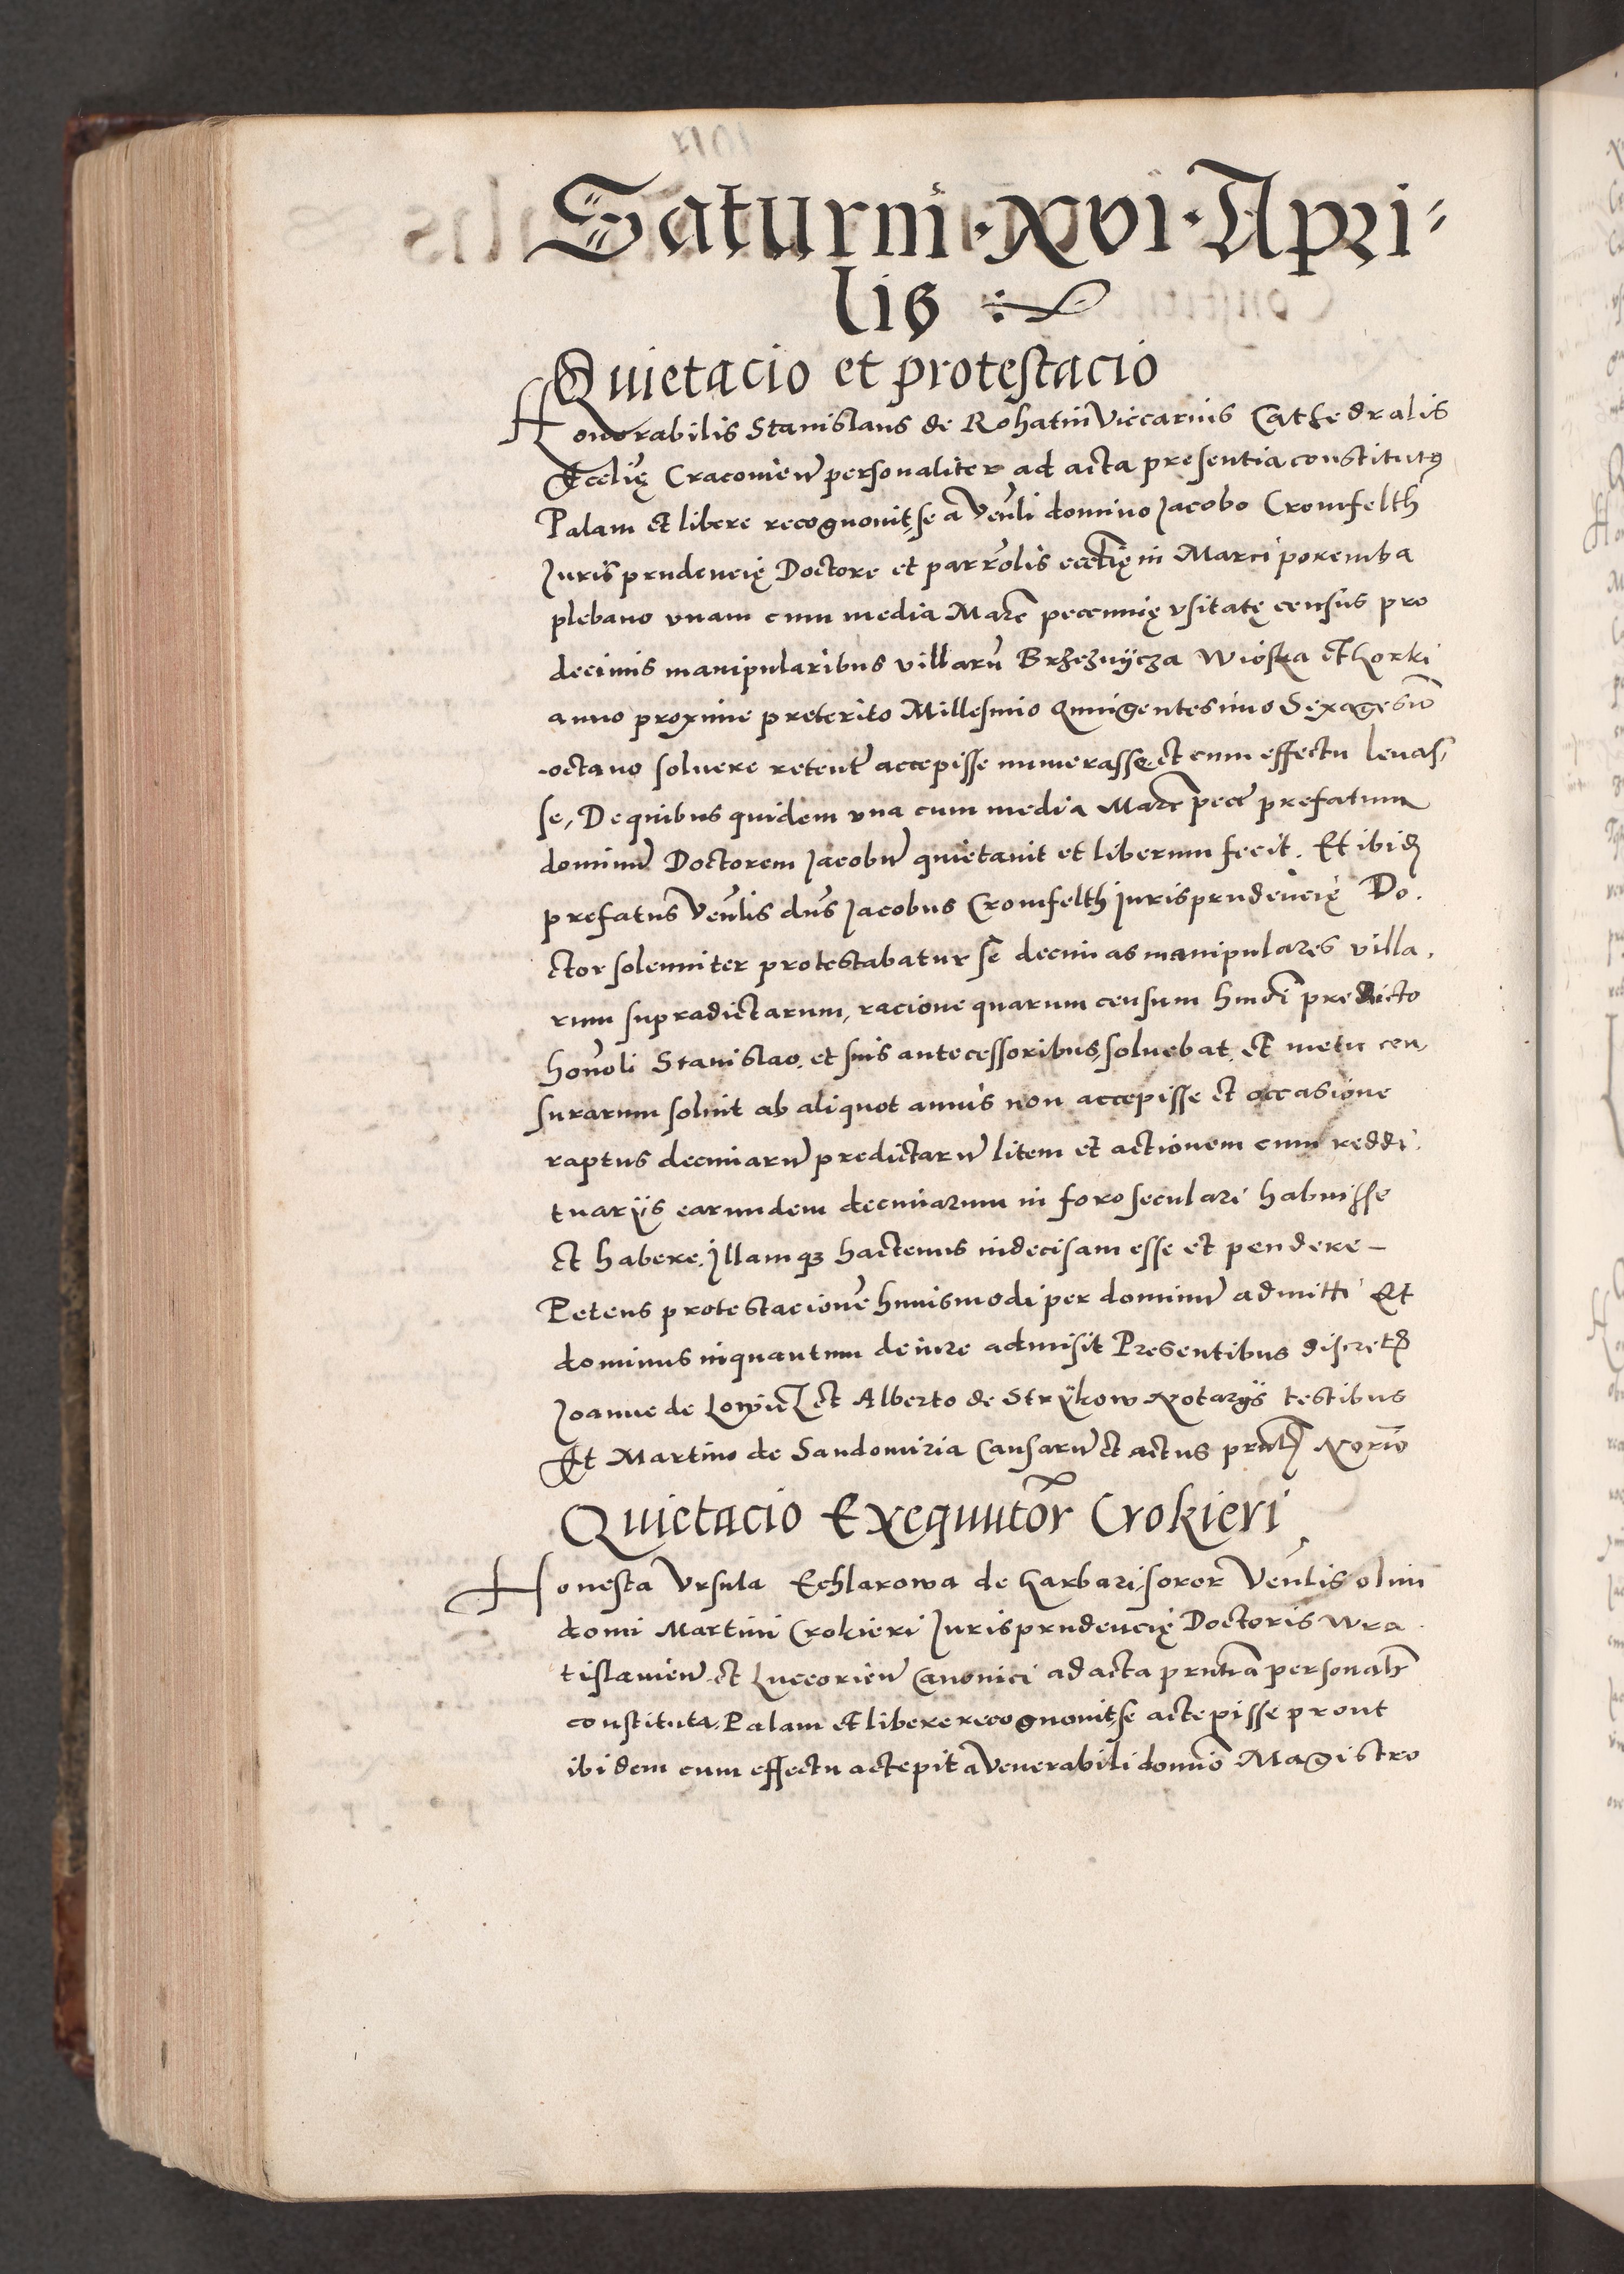 Saturni · XVI · Apri-
lis
Quietacio et protestacio
Honorabilis Stanislaus de Rohatin Viccarius Cathedralis
Ecclię Cracovien̄ personaliter ad acta presentia constitutꝰ
Palam et libere recognovit, se a Ven̄li domino Jacobo Cromfelth
Juris prudencię Doctore et parr̄olis ecclię in Marci poremba
plebano unam cum media Marc̄ peccunię usitatę census pro
decimis manipularibus villarū Brzeznÿcza Wioska et Gorki
anno proxime preterito Millesimo Quingentesimo Sexagesīo
octavo solvere retent̄ accepisse numerasse et cum effectu levas-
se, De quibus quidem una cum media Marc̄ pecc̄ prefatum
dominū Doctorem Jacobū quietavit et liberum fecit. Et ibidꝫ
prefatus Ven̄lis dn̄s Jacobus Cromfelth Jurisprudencię Do.
ctor solenniter protestabatur se decimas manipulares villa.
rum supradictarum, racione quarum censum hmōi predicto
honōli Stanislao. et suis antecessoribus, solvebat. et metu cen,
surarum solvit ab aliquot annis non accepisse et occasione
raptus decimarū predictarū litem et actionem cum reddi.
tuarÿs earundem decimarum in foro seculari habuisse
et habere. Illamqꝫ hactenus indecisam esse et pendere –
Petens protestacionē huiusmodi per dominū admitti Et
dominus inquantum de iure admisit Presentibus discretꝭ
Joanne de Lowicz et Alberto de Strÿkow Notarÿs testibus
Et Martino de Sandomiria Causarū et actus prn̄tꝭ Norio
Quietacio Exequutor̄ Crokieri
Honesta Ursula Echlarowa de Garbari, soror Ven̄lis olim
domi Martini Crokieri Jurisprudencię Doctoris Wra
tislavien̄ et Luceorien̄ Canonici ad acta prn̄tia personalr̄
constituta, Palam et libere recognovit, se accepisse prout
ibidem cum effectu accepit a Venerabili domīo Magistro